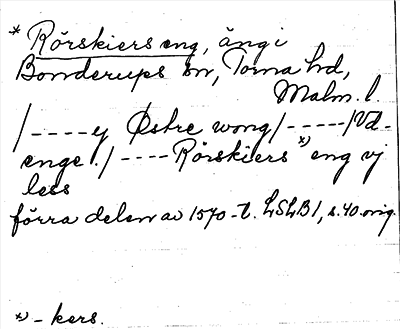 * Rörskiers eng, äng i
Bonderups sn, Torna hd,
Malm. l.
/----ej Østre wong/-----/Vd-
enge./----Rörskiers *) eng vj
less
förra delen av 1570-t. LSLB1, s.40.orig.
*) - kers.